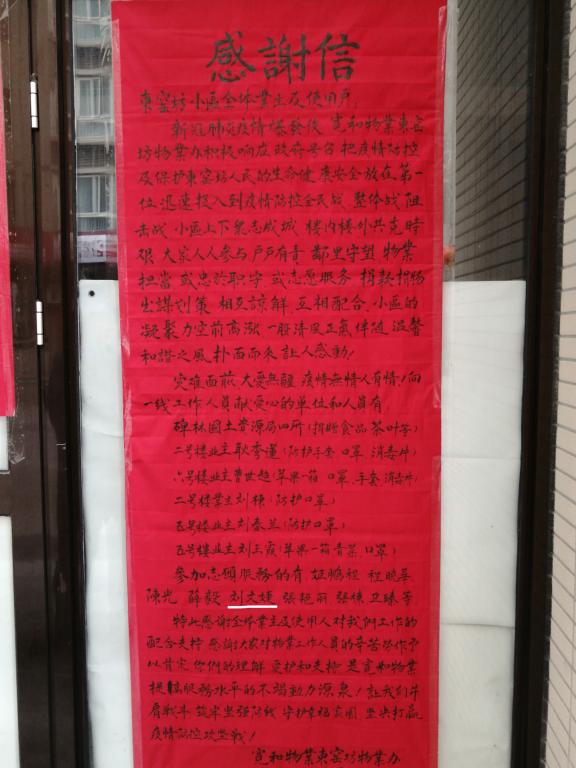 感謝信
東窑坊小區全体業主及使用戶:
新冠肺炎疫情爆發後 寬和物業東窑
坊物業办积极响应政府号召 把疫情防控
及保护東窑坊人民的生命健康安全放在第一
位 迅速投入到疫情防控全民战 整体战 阻
击战 小區上下衆志成城 楼内楼外共克時
艰 大家人人参与 戶戶有责 鄰里守望 物業
担當 或忠於职守 或志愿服务 捐款捐物
出謀划策 相互諒解 互相配合 小區的
凝聚力空前高漲 一股清風正氣伴随温馨
和諧之風 扑面而来 让人感動!
灾难面前 大愛無疆 疫情無情人有情! 向
一线工作人員献愛心的單位和人員有
碑林國土资源局四所(捐赠食品 茶叶等)
二号楼业主 (防护手套 口罩 消毒片)
六号楼业主曹世超(苹果一箱 口罩、手套、消毒片)
二号楼業主刘 (防护口罩)
五号楼业主刘春兰(防护口罩)
五号樓业主刘三霞(苹果一箱 青菜、口罩)
参加志願服務的有 程晓
陳光 薛毅 刘文婕 張艳丽 張棟 卫臻 等
特此感谢全体業主及使用人对我們工作的
配合支持 感谢大家对物業工作人員的辛苦勞作予
以肯定 你們的理解 爱护和支持 是寬和物業
提高服務水平的不竭動力源泉! 讓我们并
肩战斗 筑牢坚强防线 守护幸福家園 坚决打赢
疫情防控攻坚戰!
寬和物業東窑坊物業办